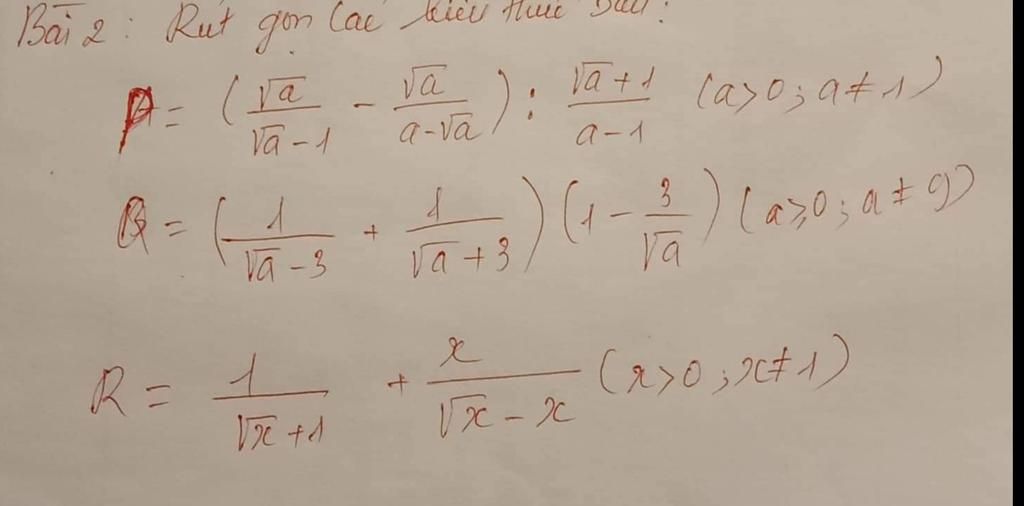 Bài 2 : Rút gọn các biểu thức sau :
P = (√a/(√a - 1) - √a/(a - √a)) : (√a + 1)/(a - 1) (a > 0 ; a ≠ 1)
Q = (1/(√a - 3) + 1/(√a + 3)) (1 - 3/√a) (a ≥ 0 ; a ≠ 9)
R = 1/(√x + 1) + x/(√x - x) (x > 0 ; x ≠ 1)